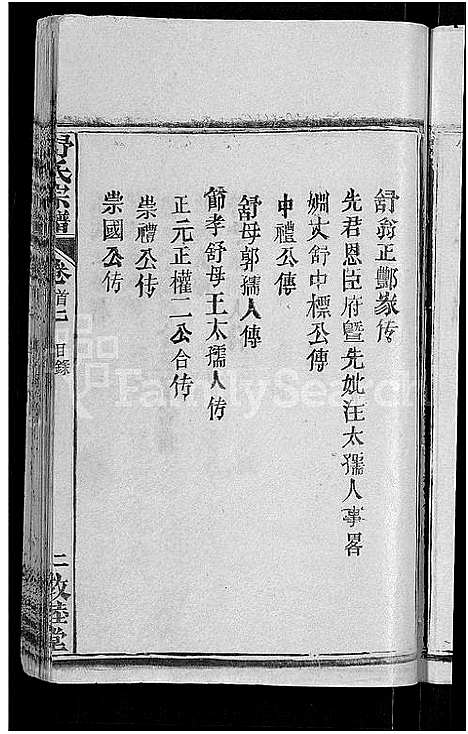 舒翁正酆家传
先君恩臣府曁先妣汪太孺人事畧
姻丈舒中標公傳
中禮公傳
舒母郭孺人傳
節孝舒母王太孺人传
正元正權二公合传
崇禮公传
崇國公传
舒氏宗譜
卷首二
目錄
二
敦睦堂
FamilySearch